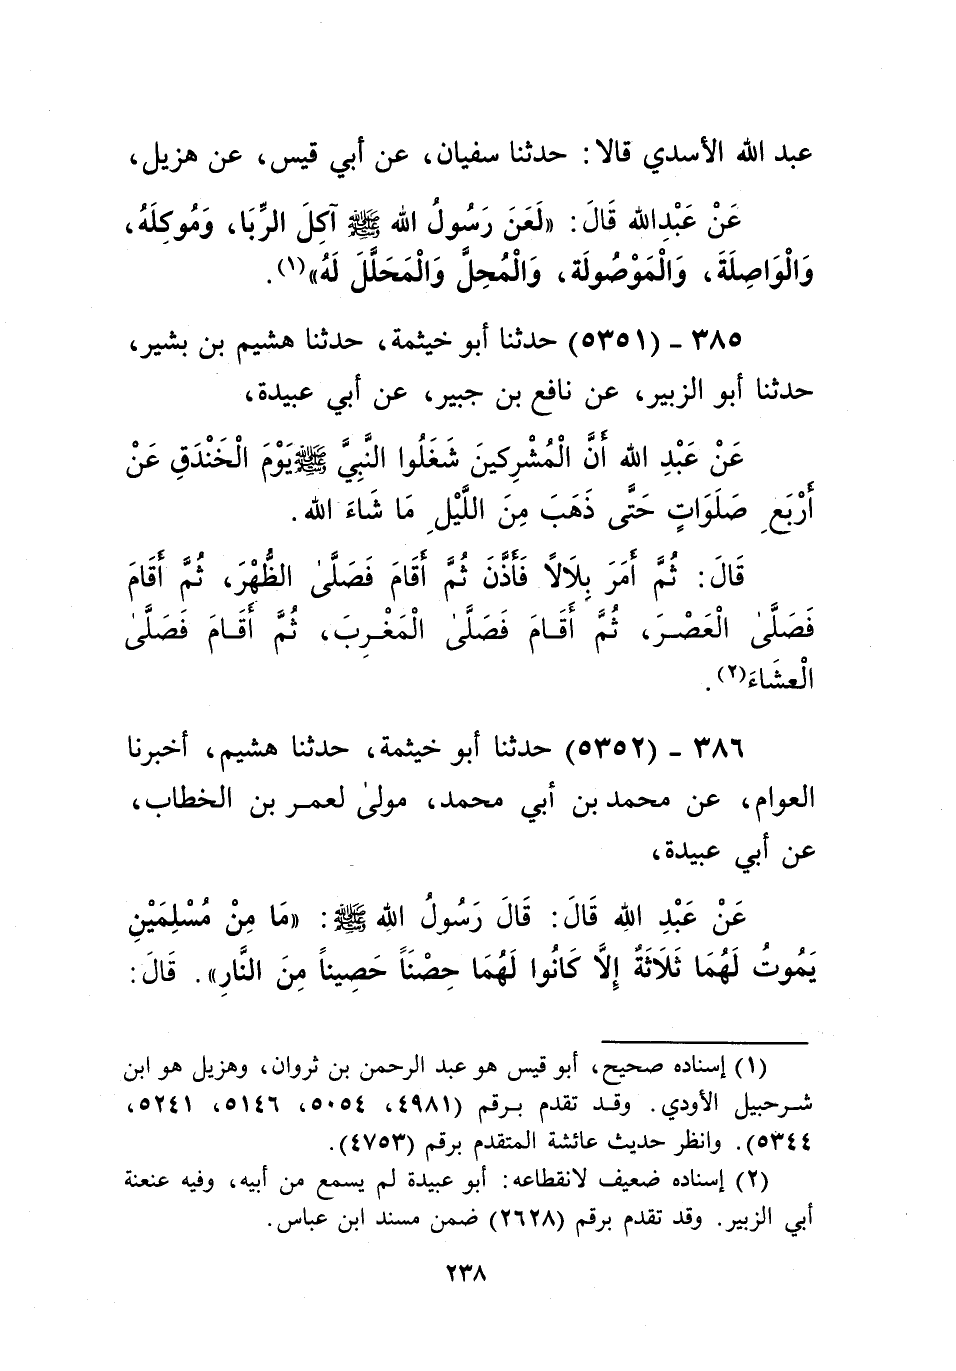 عبد الله الأسدي قالا: حدثنا سفيان، عن أبي قيس، عن هزيل،
عَنْ عَبْدِالله قَالَ: «لَعَنَ رَسُولُ الله ﷺ آكِلَ الرِّبَا، وَمُوكِلَهُ،
وَالْوَاصِلَةَ، وَالْمَوْصُولَة، وَالْمُحِلَّ وَالْمَحَلَّلَ لَهُ»(١).
٣٨٥ - (٥٣٥١) حدثنا أبو خيثمة، حدثنا هشيم بن بشير،
حدثنا أبو الزبير، عن نافع بن جبير، عن أبي عبيدة،
عَنْ عَبْدِ الله أَنَّ الْمُشْرِكينَ شَغَلُوا النَّبِيَّ ﷺ يَوْمَ الْخَنْدَقِ عَنْ
أَرْبَعِ صَلَوَاتٍ حَتَّى ذَهَبَ مِنَ اللَّيْلِ مَا شَاءَ الله.
قَالَ: ثُمَّ أَمَرَ بِلَالاً فَأَذَّنَ ثُمَّ أَقَامَ فَصَلَّىٰ الظُّهْرَ، ثُمَّ أَقَامَ
فَصَلَّىٰ الْعَصْرَ، ثُمَّ أَقَامَ فَصَلَّىٰ الْمَغْرِبَ، ثُمَّ أَقَامَ فَصَلَّىٰ
الْعشَاءَ(٢).
٣٨٦ - (٥٣٥٢) حدثنا أبو خيثمة، حدثنا هشيم، أخبرنا
العوام، عن محمد بن أبي محمد، مولىٰ لعمر بن الخطاب،
عن أبي عبيدة،
عَنْ عَبْدِ اللهِ قَالَ: قَالَ رَسُولُ اللهِ ﷺ: «مَا مِنْ مُسْلِمَيْنِ
يَمُوتُ لَهُمَا ثَلَاثَةٌ إِلَّا كَانُوا لَهُمَا حِصْنَاً حَصِيناً مِنَ النَّارِ». قَالَ:
(١) إسناده صحيح، أبو قيس هو عبد الرحمن بن ثروان، وهزيل هو ابن
شرحبيل الأودي. وقد تقدم برقم (٤٩٨١، ٥٠٥٤، ٥١٤٦، ٥٢٤١،
٥٣٤٤). وانظر حديث عائشة المتقدم برقم (٤٧٥٣).
(٢) إسناده ضعيف لانقطاعه: أبو عبيدة لم يسمع من أبيه، وفيه عنعنة
أبي الزبير. وقد تقدم برقم (٢٦٢٨) ضمن مسند ابن عباس.
٢٣٨